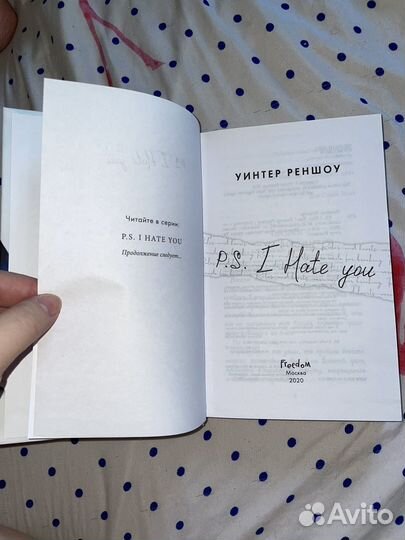 Читайте в серии:
P.S. I HATE YOU
Продолжение следует...
УИНТЕР РЕНШОУ
P.S. I Hate you
Freedom
Москва
2020
Avito